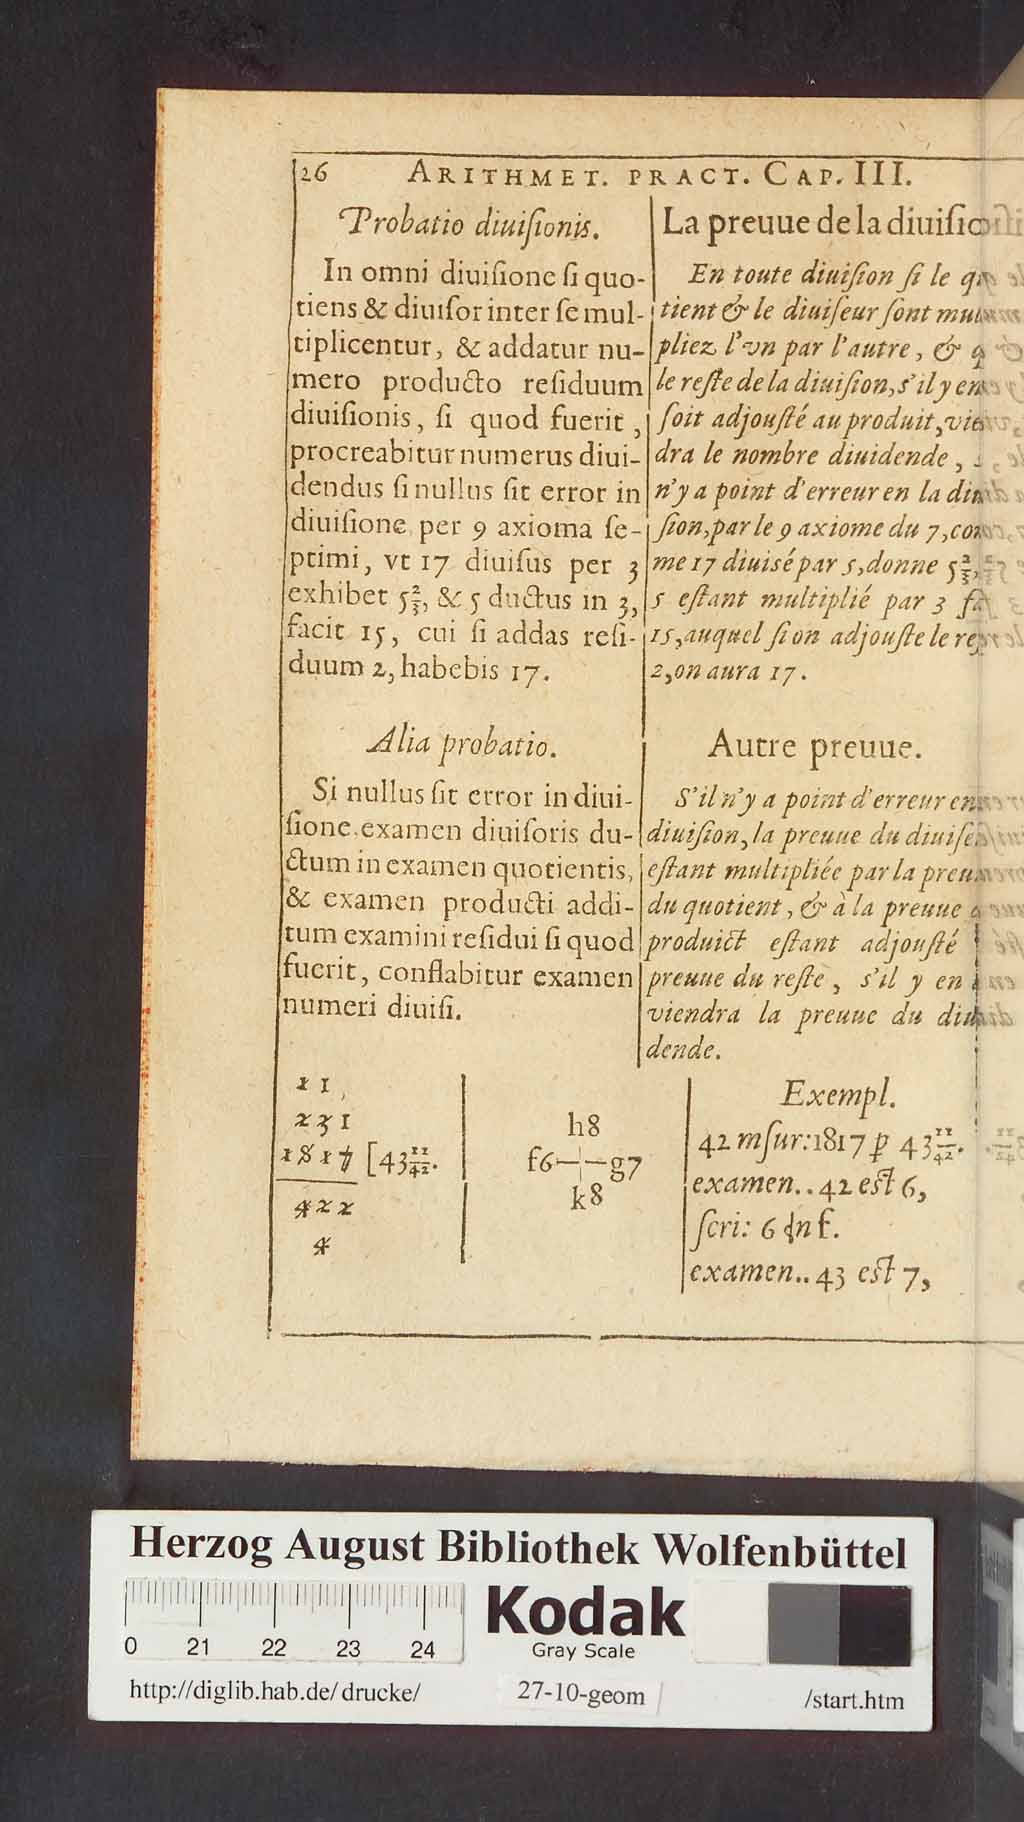 26 ARITHMET. PRACT. CAP. III.
Probatio diuiſionis.
In omni diuiſione ſi quo-
tiens & diuiſor inter ſe mul-
tiplicentur, & addatur nu-
mero producto reſiduum
diuiſionis, ſi quod fuerit,
procreabitur numerus diui-
dendus ſi nullus ſit error in
diuiſione per 9 axioma ſe-
ptimi, vt 17 diuiſus per 3
exhibet 5⅔, & 5 ductus in 3,
facit 15, cui ſi addas reſi-
duum 2, habebis 17.
Alia probatio.
Si nullus ſit error in diui-
ſione, examen diuiſoris du-
ctum in examen quotientis,
& examen producti addi-
tum examini reſidui ſi quod
fuerit, conflabitur examen
numeri diuiſi.
La preuue de la diuiſio
En toute diuiſion ſi le
tient & le diuiſeur ſont
pliez l'vn par l'autre, &
le reſte de la diuiſion, s'il y en
ſoit adjouſté au produit, vie
dra le nombre diuidende,
n'y a point d'erreur en la
ſion, par le 9 axiome du 7, co
me 17 diuisé par 5, donne 5⅔,
5 eſtant multiplié par 3
15, auquel ſi on adjouſte le re
2, on aura 17.
Autre preuue.
S'il n'y a point d'erreur en
diuiſion, la preuue du diuiſe
eſtant multipliée par la preu
du quotient, & à la preuue
produict eſtant adjouſté
preuue du reſte, s'il y en
viendra la preuue du
dende.
1 1
2 3 1
1 8 1 7 [43 11/42.
4 2 2
4
h8
f6 g7
k8
Exempl.
42 mſur: 1817 p 43 11/42.
examen.. 42 eſt 6,
ſcri: 6 in f.
examen.. 43 eſt 7,
Herzog August Bibliothek Wolfenbüttel
0 21 22 23 24
Kodak
Gray Scale
http://diglib.hab.de/drucke/ 27-10-geom /start.htm